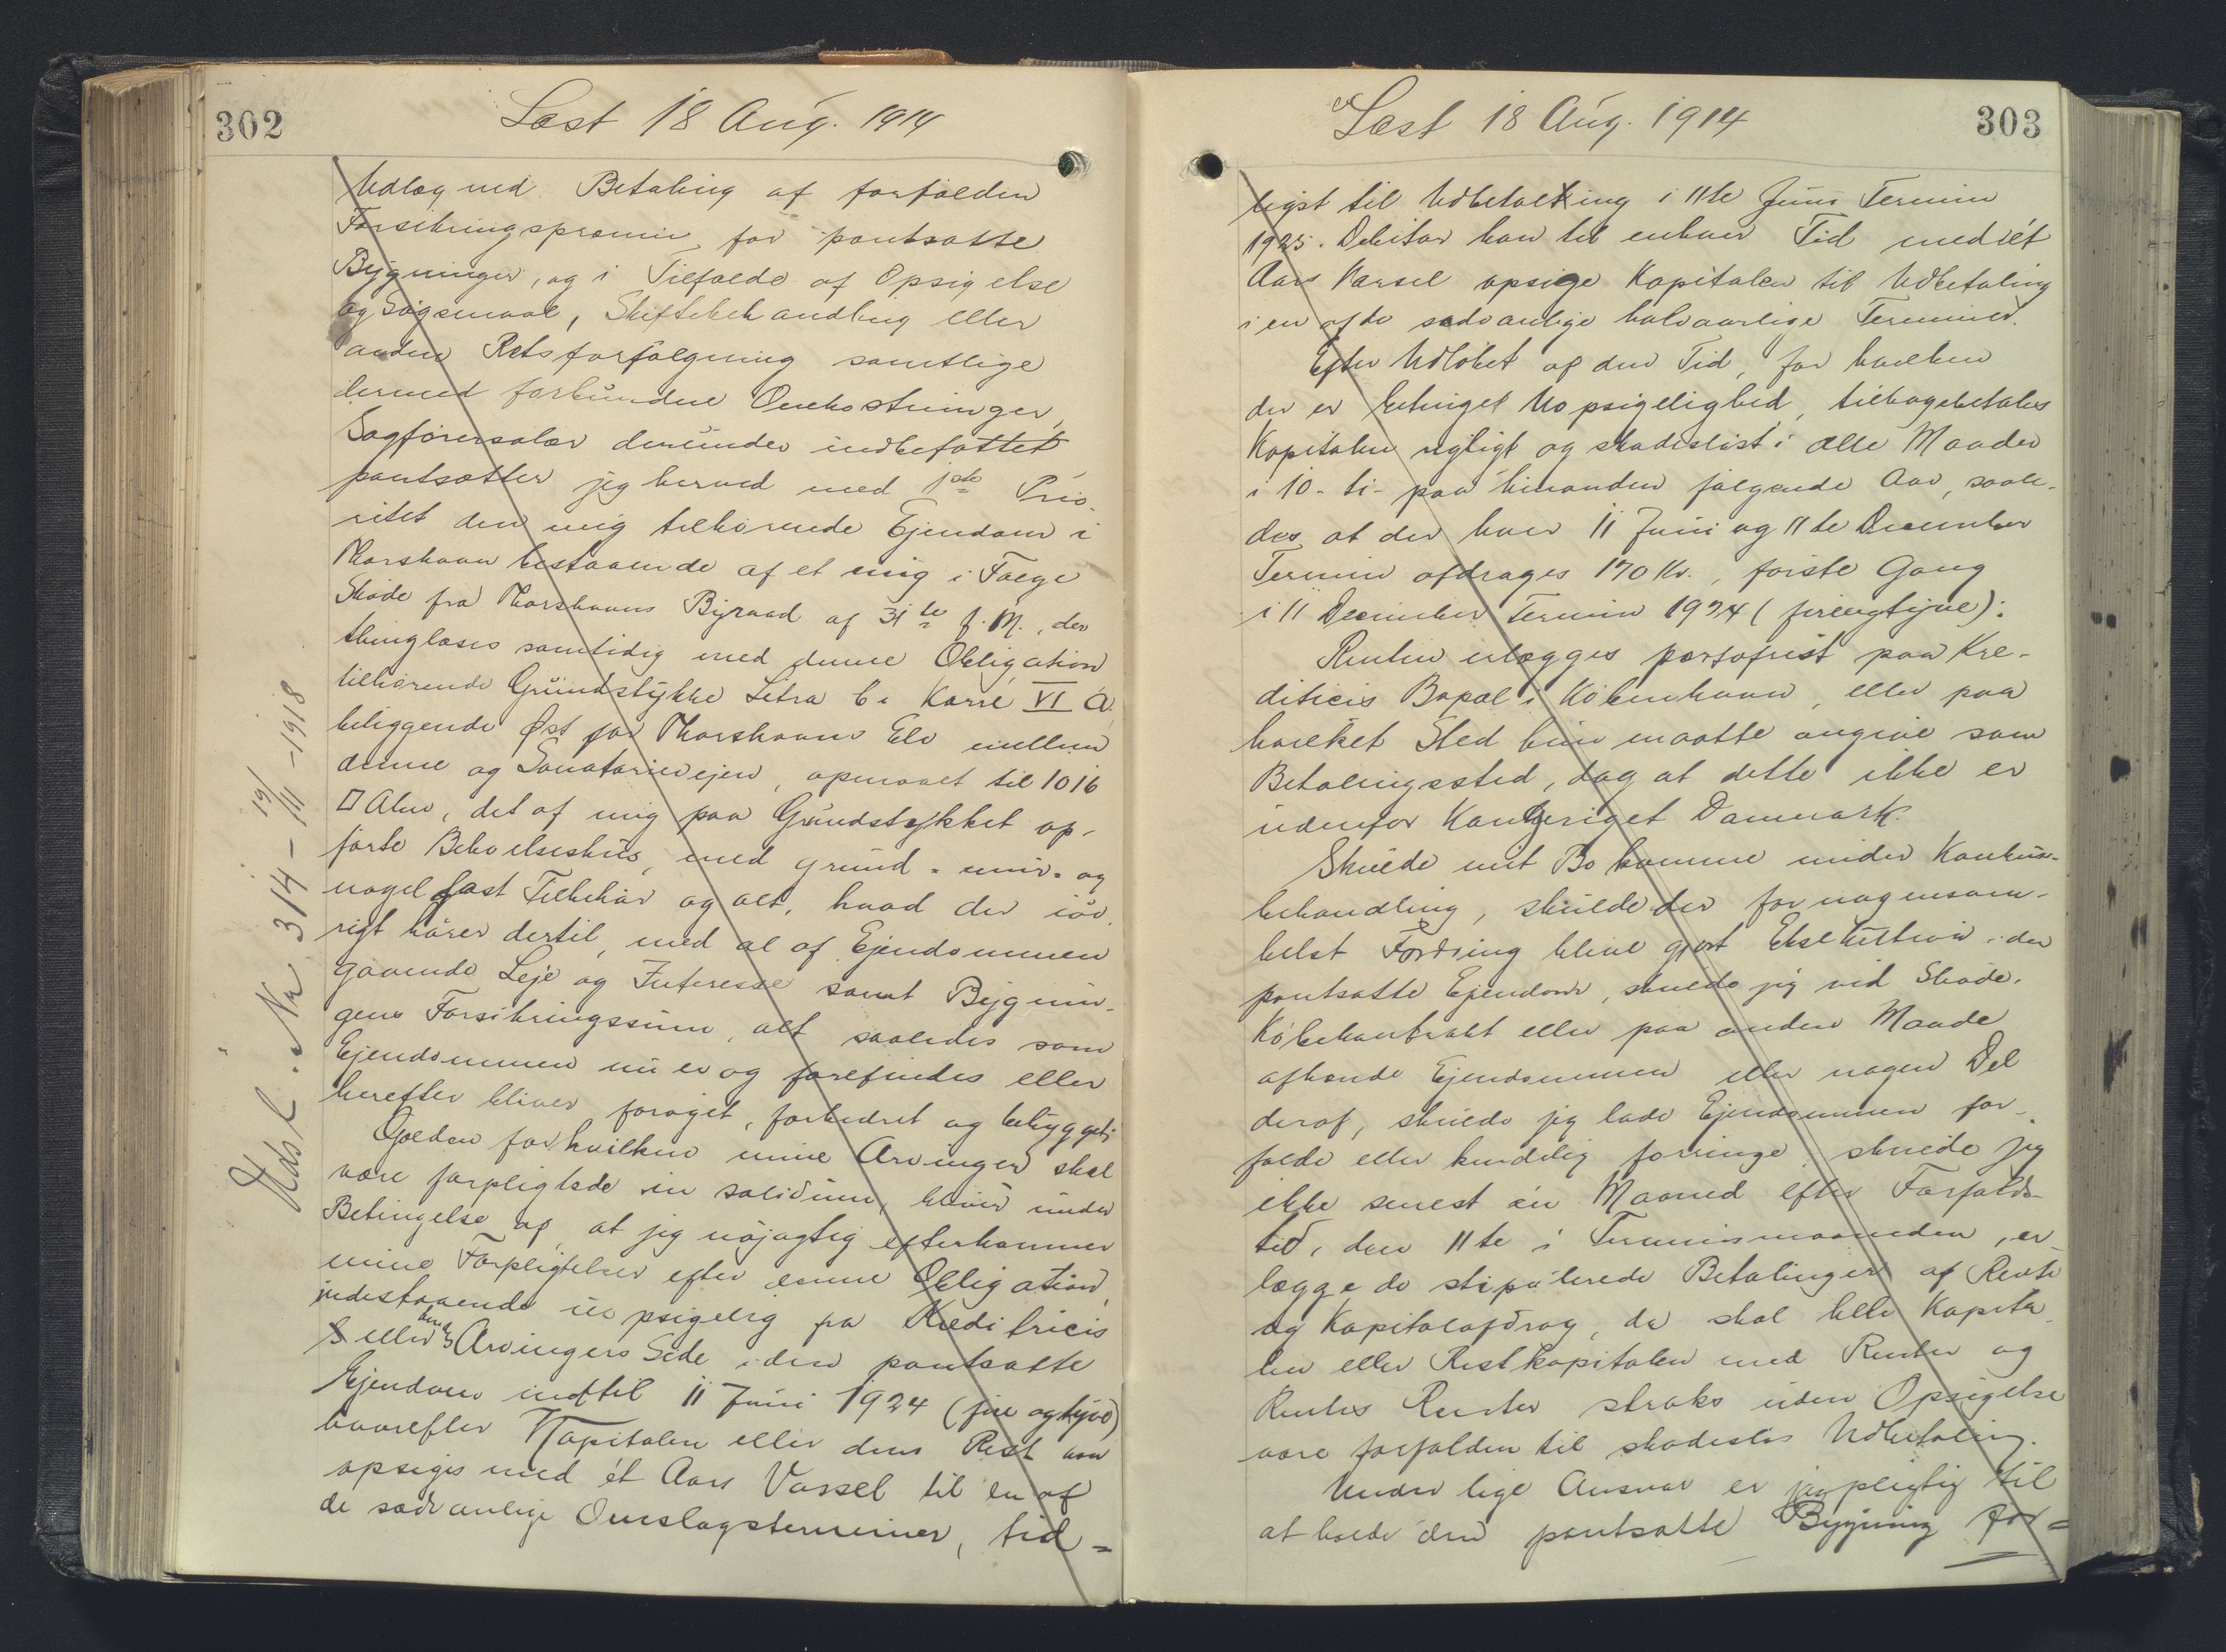 302
Læst 18 Aug. 1914
Udlæg ved Betaling af forfalden
Forsikringspræmie for pantsatte
Bygninger, og i Tilfælde af Opsigelse
og Søgsmaal, Skiftebehandling eller
anden Retsforfølgning samtlige
dermed forbundne Omkostninger,
Sagførersalær derunder indbefattet
pantsætter jeg herved med 1ste Prio-
ritet den mig tilhørende Ejendom i
Thorshavn bestaaende af et mig i Følge
Skøde fra Thorshavns Byraad af 31te f. M., der
thinglæses samtidig med denne Obligation
tilhørende Grundstykke Litra C i Karré VI a
beliggende Øst for Thorshavns Elv mellem
denne og Sanatorievejen, opmaalt til 1016
□ Alen, det af mig paa Grundstykket op-
førte Beboelseshus, med grund- mur- og
nagelfast Tilbehør og alt, hvad der iøv-
rigt hører dertil, med al af Ejendommen
gaaende Leje og Interesse samt Bygnin-
gens Forsikringssum, alt saaledes som
Ejendommen nu er og forefindes eller
herefter bliver forøget, forbedret og bebygget;
Gælden for hvilken mine Arvinger skal
være forpligtede in solidum, bliver under
Betingelse af, at jeg nøjagtig efterkommer
mine Forpligtelser efter denne Obligation,
indestaaende uopsigelig fra Kreditricis
eller hendes Arvingers Side i den pantsatte
Ejendom indtil 11 Juni 1924 (fire og tyve)
hvorefter Kapitalen eller dens Rest kan
opsiges med ét Aars Varsel til en af
de sædvanlige Omslagsterminer, tid=
Udsl. Nr 314 - 19/11 - 1918
303
Læst 18 Aug. 1914
ligst til Udbetaling i 11te Juni Termin
1925. Debitor kan til enhver Tid med ét
Aars Varsel opsige Kapitalen til Udbetaling
i en af de sædvanlige halvaarlige Terminer.
Efter Udløbet af den Tid, for hvilken
der er betinget Uopsigelighed, tilbagebetales
Kapitalen rigtigt og skadesløst i alle Maader
i 10 - ti - paa hinanden følgende Aar, saale-
des at der hver 11 Juni og 11te December
Termin afdrages 170 Kr., første Gang
i 11 December Termin 1924 (fireogtyve).
Renten erlægges portofrit paa Kre-
ditricis Bopæl i København, eller paa
hvilket Sted hun maatte angive som
Betalingssted, dog at dette ikke er
udenfor Kongeriget Danmark.
Skulde mit Bo komme under Konkurs-
behandling, skulde der for nogensom-
helst Fordring blive gjort Eksekution i den
pantsatte Ejendom, skulde jeg ved Skøde,
Købekontrakt eller paa anden Maade
afhænde Ejendommen eller nogen Del
deraf, skulde jeg lade Ejendommen for-
falde eller kendelig forringe, skulde jeg
ikke senest én Maaned efter Forfalds-
tid, den 11te i Terminsmaaneden, er-
lægge de stipulerede Betalinger af Rente
og Kapitalafdrag, da skal hele Kapita-
len eller Restkapitalen med Renter og
Rentes Renter straks uden Opsigelse
være forfalden til skadesløs Udbetaling.
Under lige Ansvar er jeg pligtig til
at holde den pantsatte Bygning for=